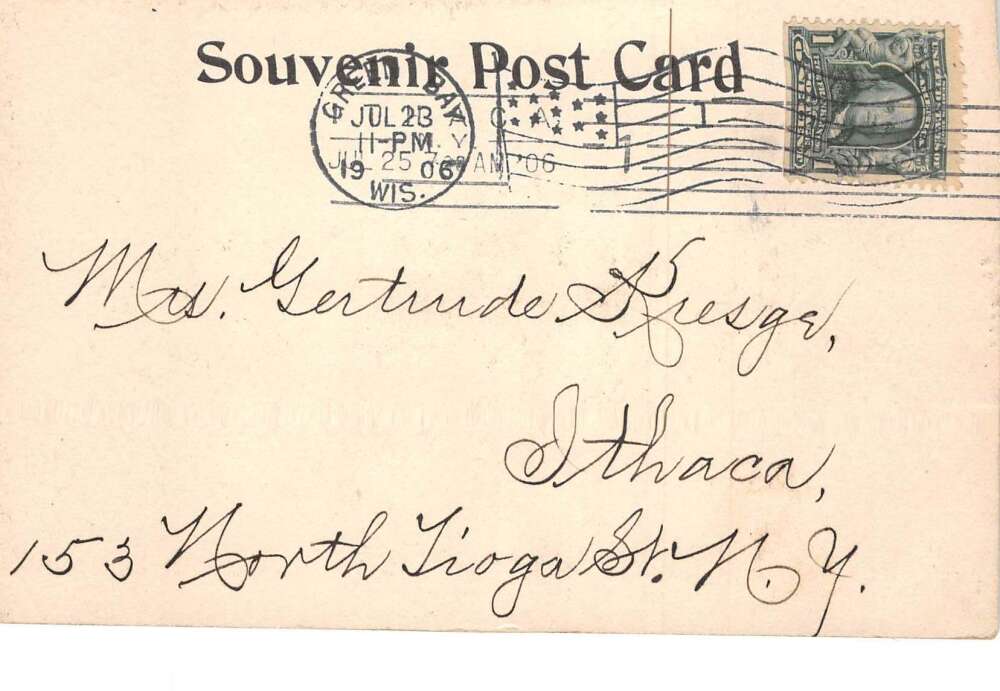 Souvenir Post Card
GREEN BAY
JUL 23
11-PM
1906
WIS.
JUL 25 AM '06
1
Mrs. Gertrude Kresge,
Ithaca,
153 North Tioga St. N.Y.